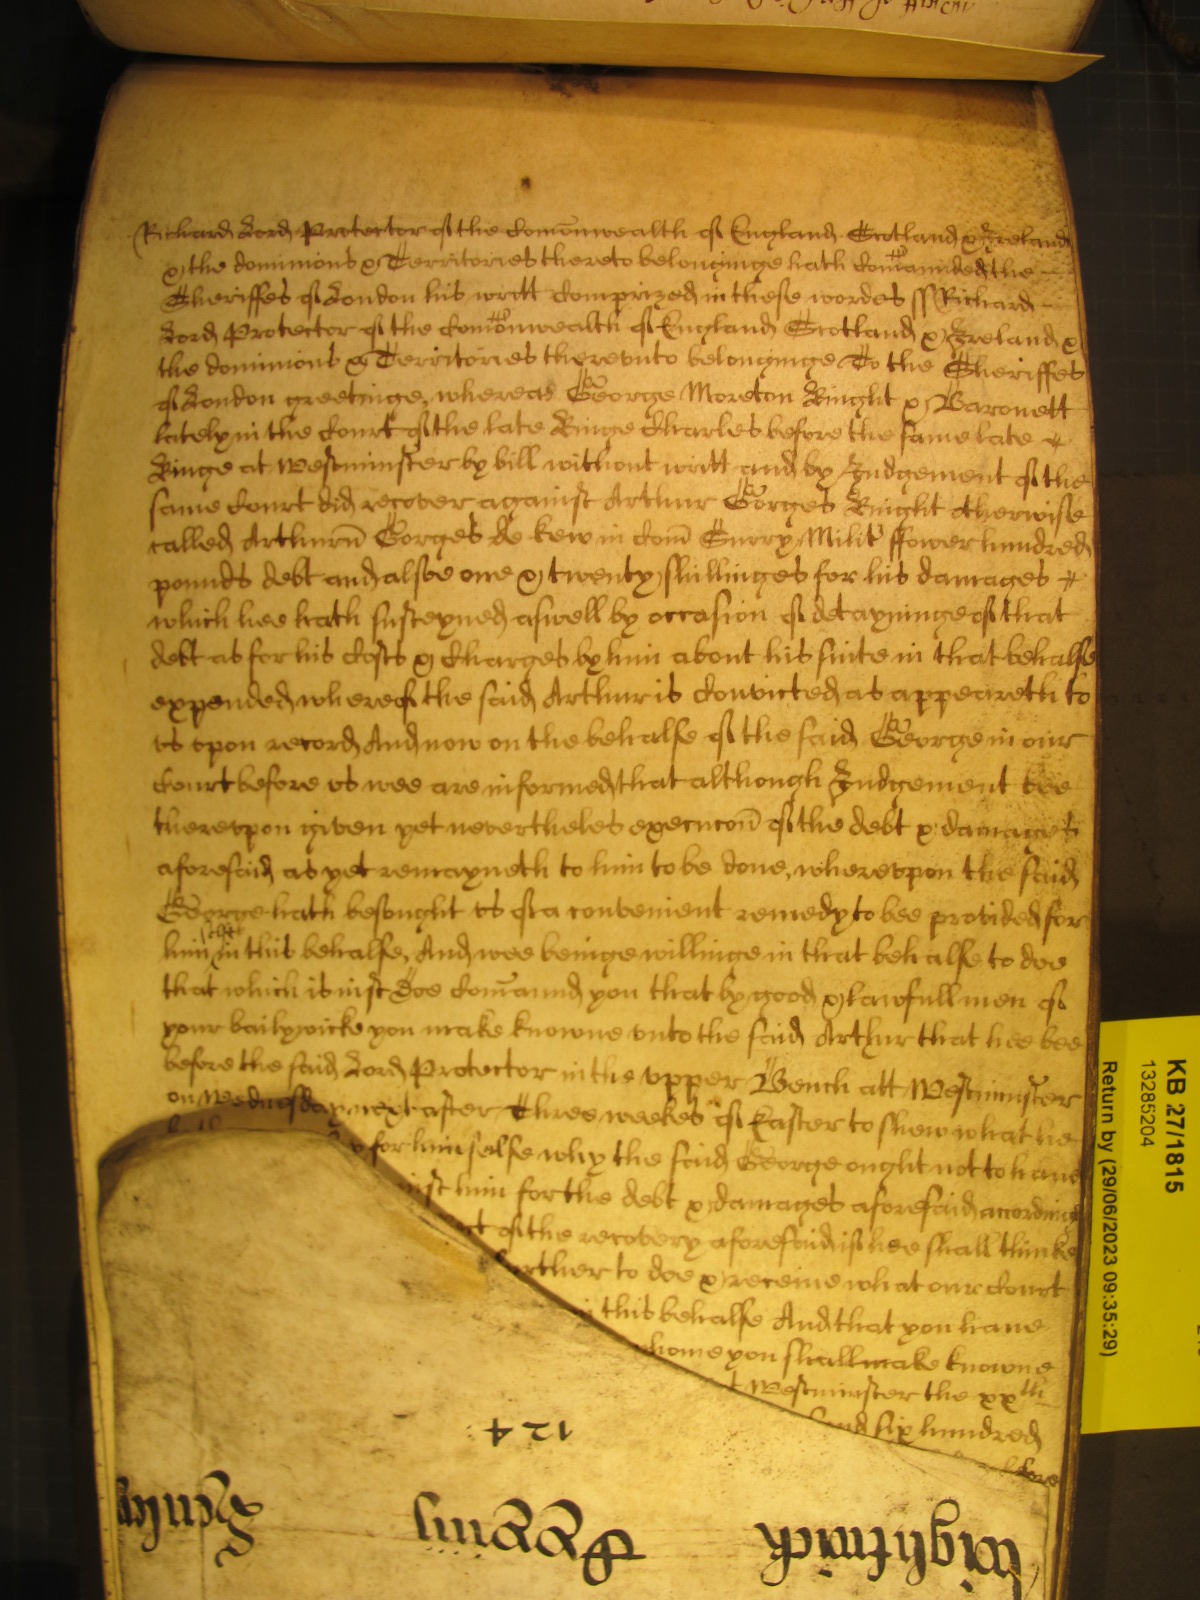 Richard Lord Protector of the Comonwealth of England Scotland & Ireland
& the dominions & Territories thereto belonginge hath Comaunded the
Sheriffes of London his writt Comprized in these wordes ss Richard
Lord Protector of the Comonwealth of England Scotland & Ireland &
the dominions & Territories therevnto belonginge To the Sheriffes
of London greetinge, whereas George Moreton Knight & Baronett
lately in the Court of the late Kinge Charles before the same late
Kinge at Westminster by bill without writt and by Judgement of the
same Court did recover against Arthur Gorges Knight otherwise
called Arthurū Gorges de kew in Com̄ Surry Milit ffower hundred
pounds debt and alsoe one & twenty shillinges for his damages
which hee hath susteyned aswell by occasion of detayninge of that
debt as for his Costs & Charges by him about his suite in that behalfe
expended whereof the said Arthur is Convicted as appeareth to
vs vpon record And now on the behalfe of the said George in our
Court before vs wee are informed that although Judgement bee
therevpon given yet nevertheles execucon̄ of the debt & damages
aforesaid as yet remayneth to him to be done, wherevpon the said
George hath besought vs of a convenient remedy to bee provided for
him in this behalfe, And wee beinge willinge in that behalfe to doe
that which is iust Doe Com̄aund you that by good & lawfull men of
your bailywicke you make knowne vnto the said Arthur that hee bee
before the said Lord Protector in the vpper Bench att Westminster
on Wednesday next after Three weekes of Easter to shew what he
for himselfe why the said George ought not to have
him for the debt & damages aforesaid according
of the recovery aforesaid if hee shall thinke
to doe & receive what our Court
this behalfe And that you have
you shall make knowne
Westminster the xxth
six hundred
124
Wightwick
KB 27/1815
13285204
Return by (29/06/2023 09:35:29)